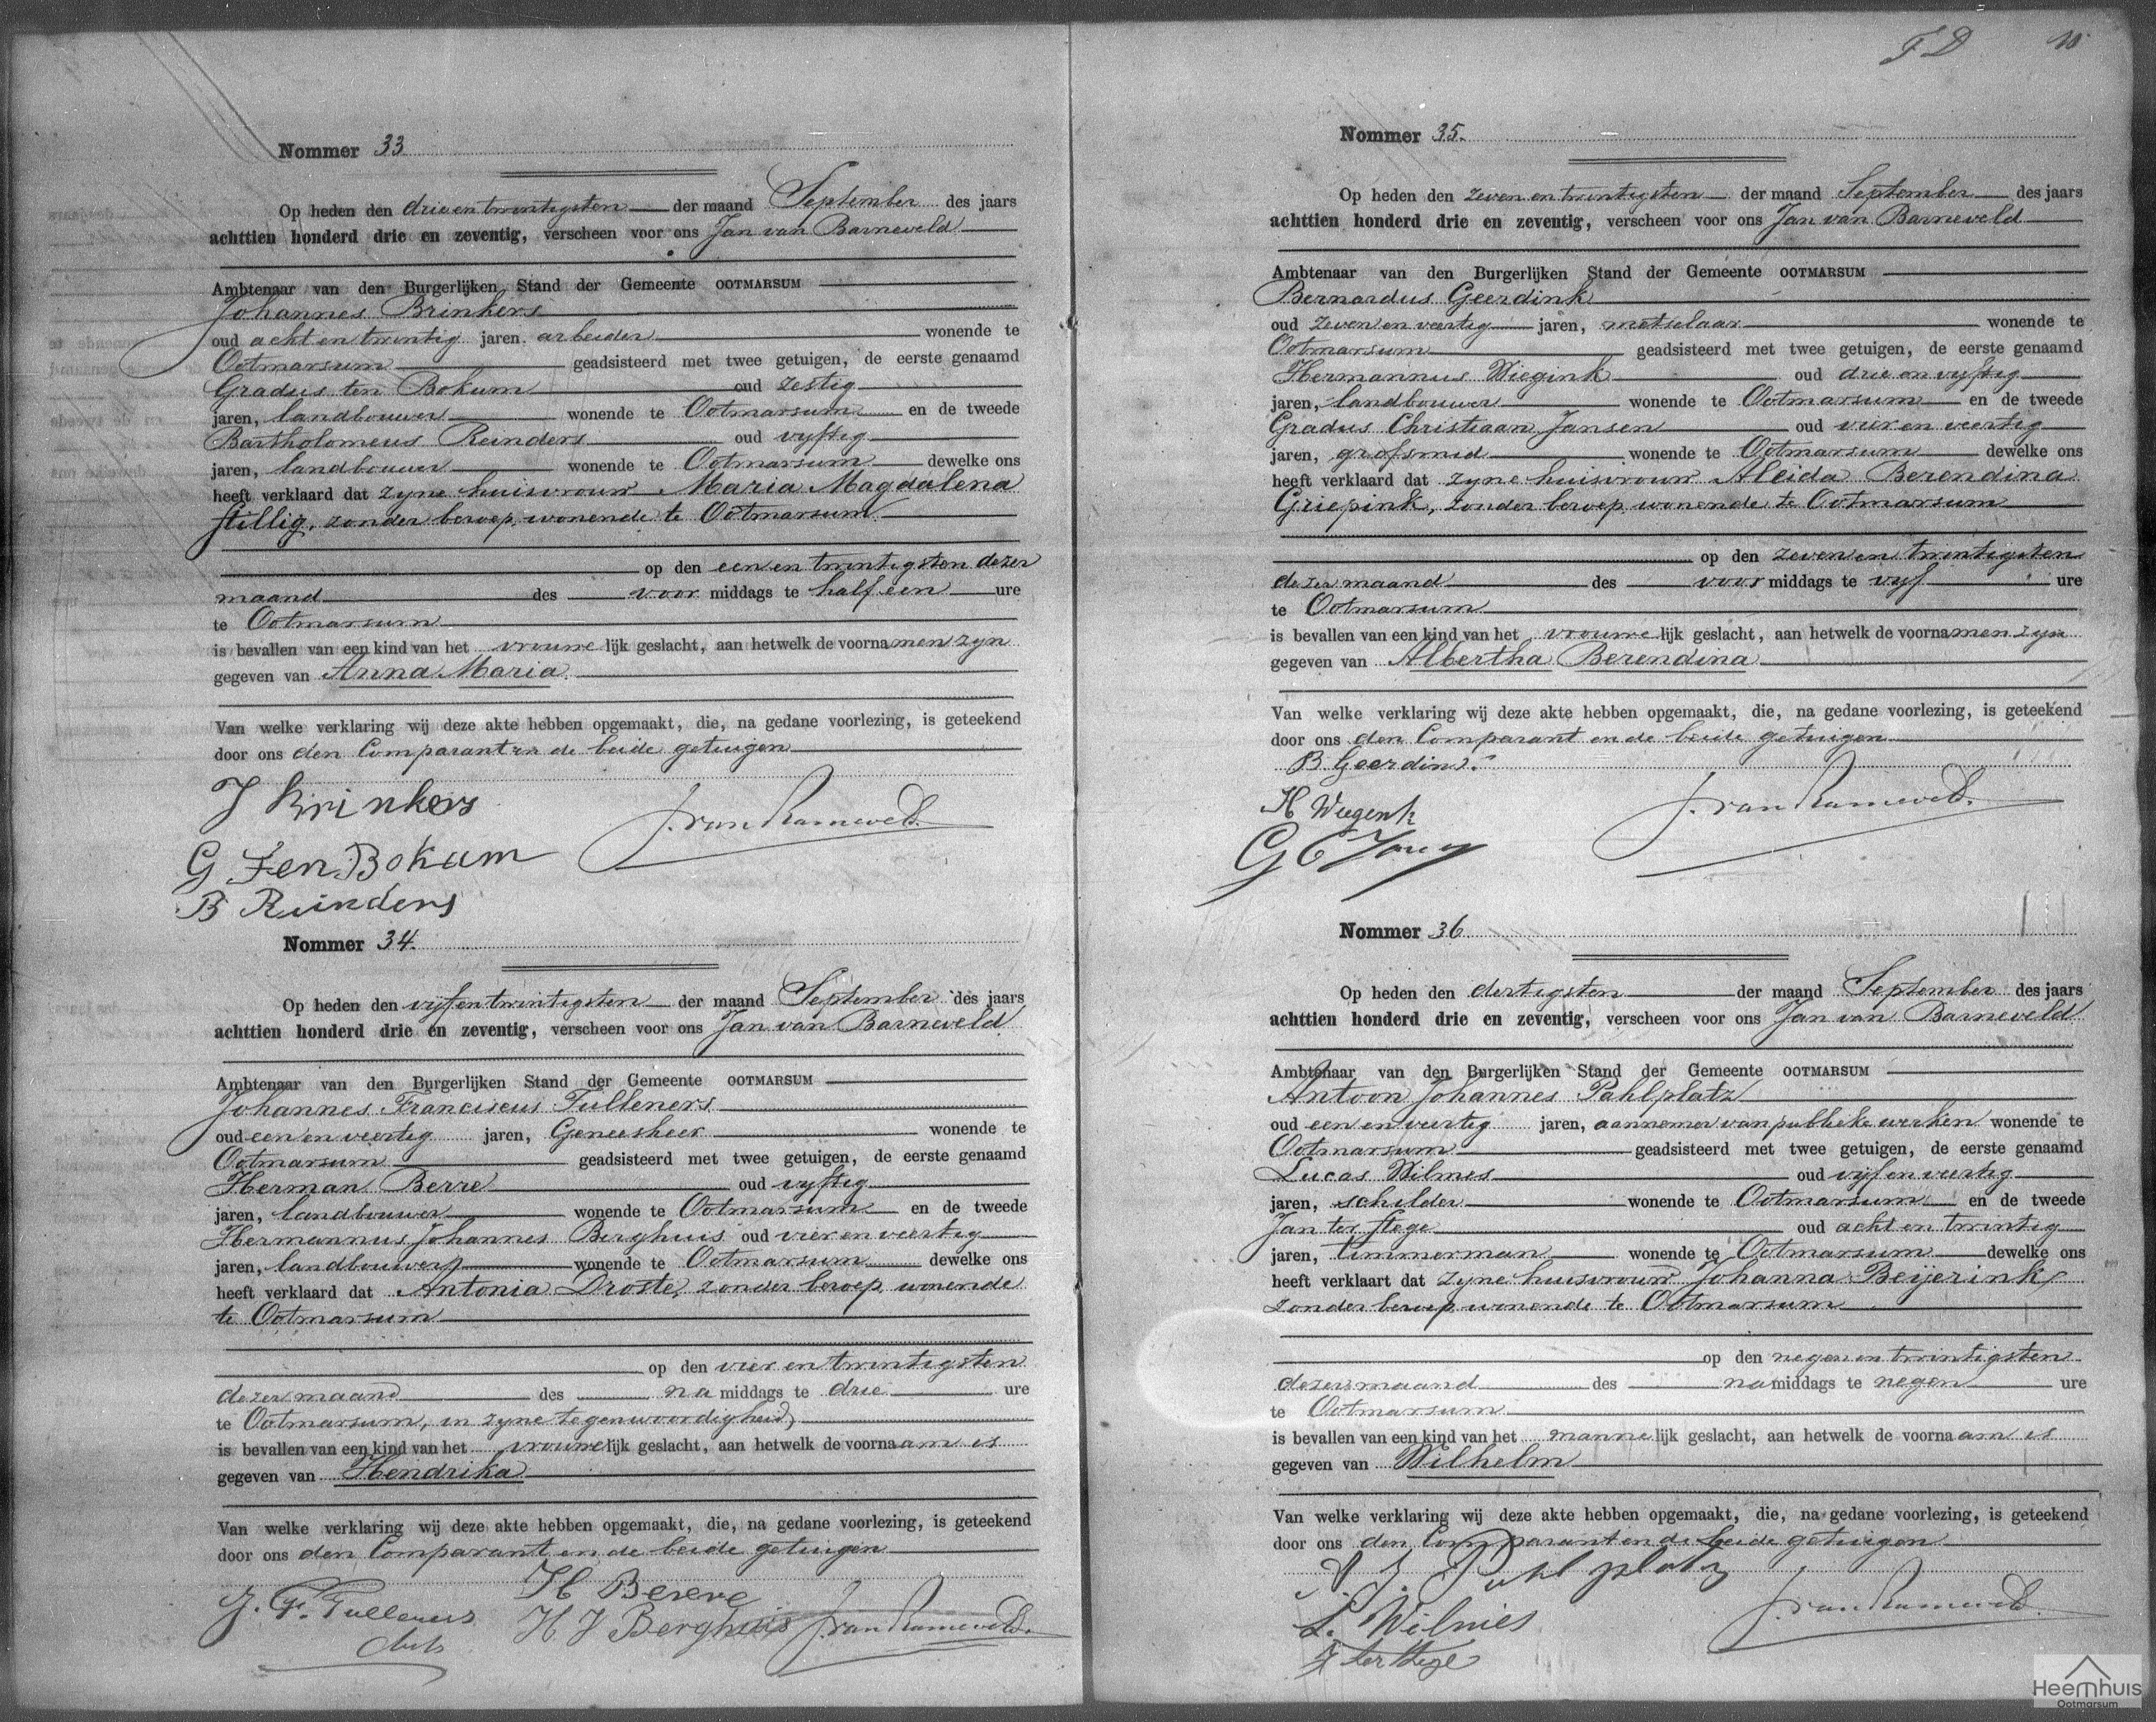 Nommer 33
Op heden den drie en twintigsten der maand September des jaars
achttien honderd drie en zeventig, verscheen voor ons Jan van Barneveld
Ambtenaar van den Burgerlijken Stand der Gemeente OOTMARSUM
Johannes Brinkers
oud acht en twintig jaren, arbeider wonende te
Ootmarsum geadsisteerd met twee getuigen, de eerste genaamd
Gradus ten Bokum oud zestig
jaren, landbouwer wonende te Ootmarsum en de tweede
Bartholomeus Reinders oud vyftig
jaren, landbouwer wonende te Ootmarsum dewelke ons
heeft verklaard dat zyne huisvrouw Maria Magdalena
Stillig, zonder beroep, wonende te Ootmarsum
op den een en twintigsten dezer
maand des voor middags te half een ure
te Ootmarsum
is bevallen van een kind van het vrouwelijk geslacht, aan hetwelk de voornamen zyn
gegeven van Anna Maria.
Van welke verklaring wij deze akte hebben opgemaakt, die, na gedane voorlezing, is geteekend
door ons den Comparant en de beide getuigen
J Brinkers
J. van Barneveld.
G Ten Bokum
B Reinders
Nommer 34.
Op heden den vyf en twintigsten der maand September des jaars
achttien honderd drie en zeventig, verscheen voor ons Jan van Barneveld
Ambtenaar van den Burgerlijken Stand der Gemeente OOTMARSUM
Johannes Franciscus Tulleners
oud een en veertig jaren, Geneesheer wonende te
Ootmarsum geadsisteerd met twee getuigen, de eerste genaamd
Herman Berre oud vyftig
jaren, landbouwer wonende te Ootmarsum en de tweede
Hermannus Johannes Berghuis oud vier en veertig
jaren, landbouwer wonende te Ootmarsum dewelke ons
heeft verklaard dat Antonia Droste, zonder beroep, wonende
te Ootmarsum
op den vier en twintigsten
dezer maand des na middags te drie ure
te Ootmarsum, in zyne tegenwoordigheid,
is bevallen van een kind van het vrouwelijk geslacht, aan hetwelk de voornaam is
gegeven van Hendrika
Van welke verklaring wij deze akte hebben opgemaakt, die, na gedane voorlezing, is geteekend
door ons den Comparant en de beide getuigen
H Bereve
J. F. Tulleners
H J Berghuis J. van Barneveld.
TD
Nommer 35.
Op heden den zeven en twintigsten der maand September des jaars
achttien honderd drie en zeventig, verscheen voor ons Jan van Barneveld
Ambtenaar van den Burgerlijken Stand der Gemeente OOTMARSUM
Bernardus Geerdink
oud zeven en veertig jaren, metselaar wonende te
Ootmarsum geadsisteerd met twee getuigen, de eerste genaamd
Hermannus Wiegink oud drie en vyftig
jaren, landbouwer wonende te Ootmarsum en de tweede
Gradus Christiaan Jansen oud vier en veertig
jaren, grofsmid wonende te Ootmarsum dewelke ons
heeft verklaard dat zyne huisvrouw Aleida Berendina
Griepink, zonder beroep, wonende te Ootmarsum
op den zeven en twintigsten
dezer maand des voor middags te vyf ure
te Ootmarsum
is bevallen van een kind van het vrouwelijk geslacht, aan hetwelk de voornamen zyn
gegeven van Albertha Berendina
Van welke verklaring wij deze akte hebben opgemaakt, die, na gedane voorlezing, is geteekend
door ons den Comparant en de beide getuigen
B Geerdink
H Wiegenk
J. van Barneveld.
G C
Nommer 36
Op heden den dertigsten der maand September des jaars
achttien honderd drie en zeventig, verscheen voor ons Jan van Barneveld
Ambtenaar van den Burgerlijken Stand der Gemeente OOTMARSUM
Antoon Johannes Pahlplatz
oud een en veertig jaren, aannemer van publieke werken wonende te
Ootmarsum geadsisteerd met twee getuigen, de eerste genaamd
Lucas Wilmes oud vyf en veertig
jaren, schilder wonende te Ootmarsum en de tweede
Jan ter Stege oud acht en twintig
jaren, timmerman wonende te Ootmarsum dewelke ons
heeft verklaart dat zyne huisvrouw Johanna Beijerink,
zonder beroep wonende te Ootmarsum
op den negen en twintigsten
dezer maand des na middags te negen ure
te Ootmarsum
is bevallen van een kind van het mannelijk geslacht, aan hetwelk de voornaam is
gegeven van Wilhelm
Van welke verklaring wij deze akte hebben opgemaakt, die, na gedane voorlezing, is geteekend
door ons den Comparant en de beide getuigen
A J. Pahlplatz
J. van Barneveld.
L. Wilmes
J ter Stege
Heemhuis
Ootmarsum